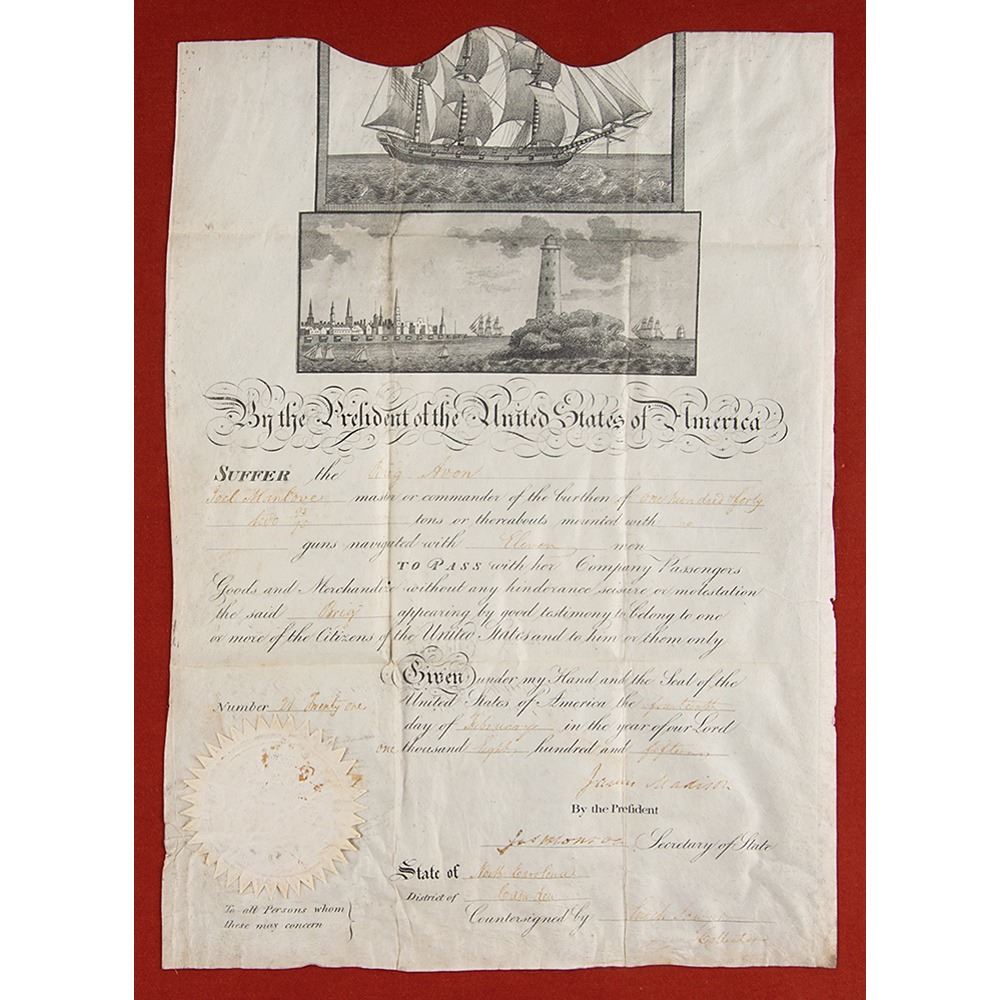 By the President of the United States of America
SUFFER the Brig Avon
Joel Manlove master or commander of the burthen of one hundred & forty
two 93/95 tons or thereabouts mounted with no
guns navigated with Eleven men
TO PASS with her Company Passengers
Goods and Merchandize without any hinderance seisure or molestation
the said Brig appearing by good testimony to belong to one
or more of the Citizens of the United States and to him or them only
Given under my Hand and the Seal of the
United States of America the
Number 21 Twenty one
day of February in the year of our Lord
one thousand eight hundred and fifteen
James Madison
By the President
Jas Monroe Secretary of State
State of North Carolina
District of Camden
To all Persons whom
these may concern
Countersigned by
Collector